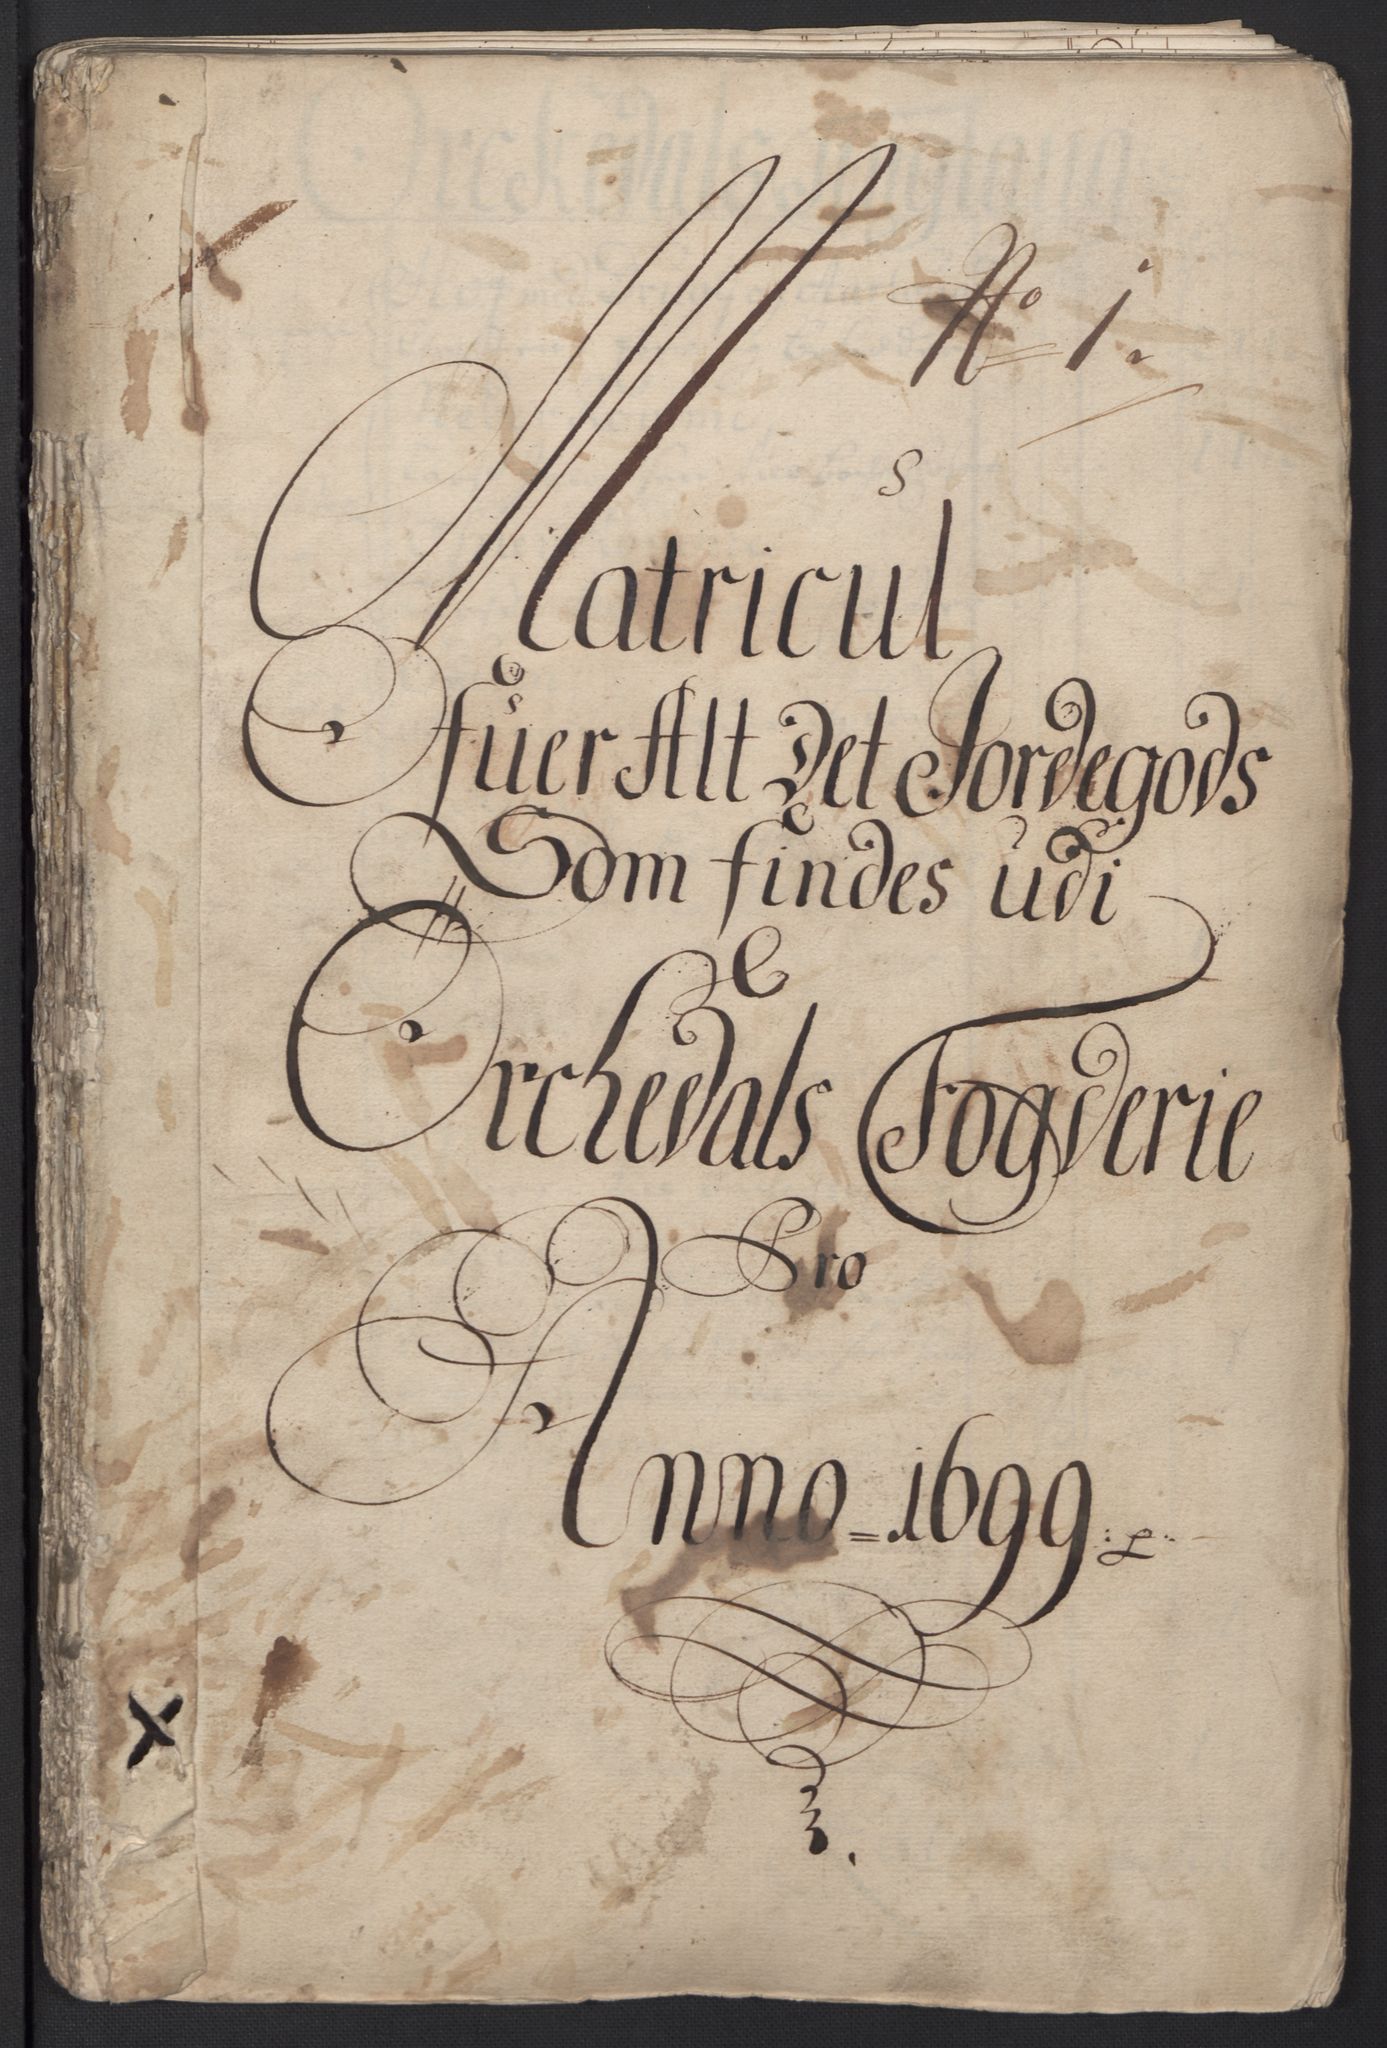 No 1.
Matricul
Ofuer Alt Det Jordegods
Som findes udi
Orchedals Fogderie
Pro
Anno = 1699